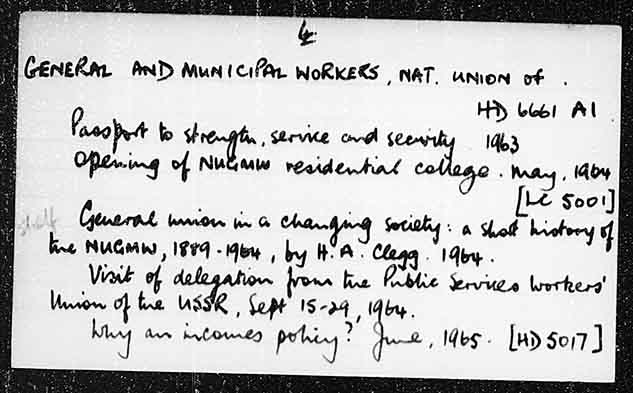 4
GENERAL AND MUNICIPAL WORKERS, NAT. UNION of.
HD 6661 A1
Passport to strength, service and security 1963
Opening of NUGMW residential college. May, 1964
[LC 5001]
shelf
General union in a changing society: a short history of
the NUGMW, 1889-1964, by H.A. Clegg. 1964.
Visit of delegation from the Public Services Workers'
Union of the USSR, Sept 15-29, 1964.
Why an incomes policy? June, 1965. [HD 5017]